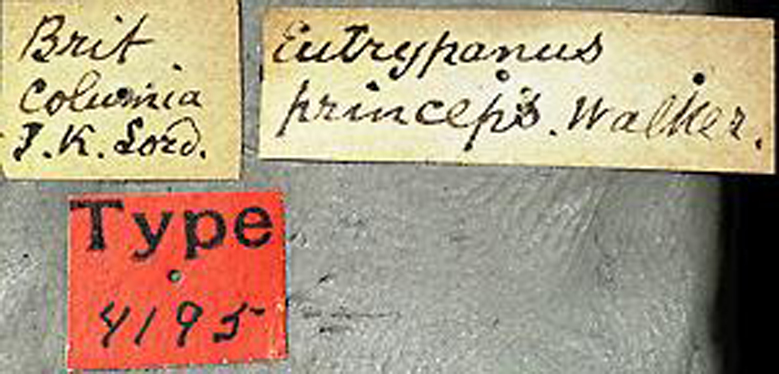 Brit
Columia
J.K. Lord.
Eutrypanus
princeps. Walker.
Type
4195